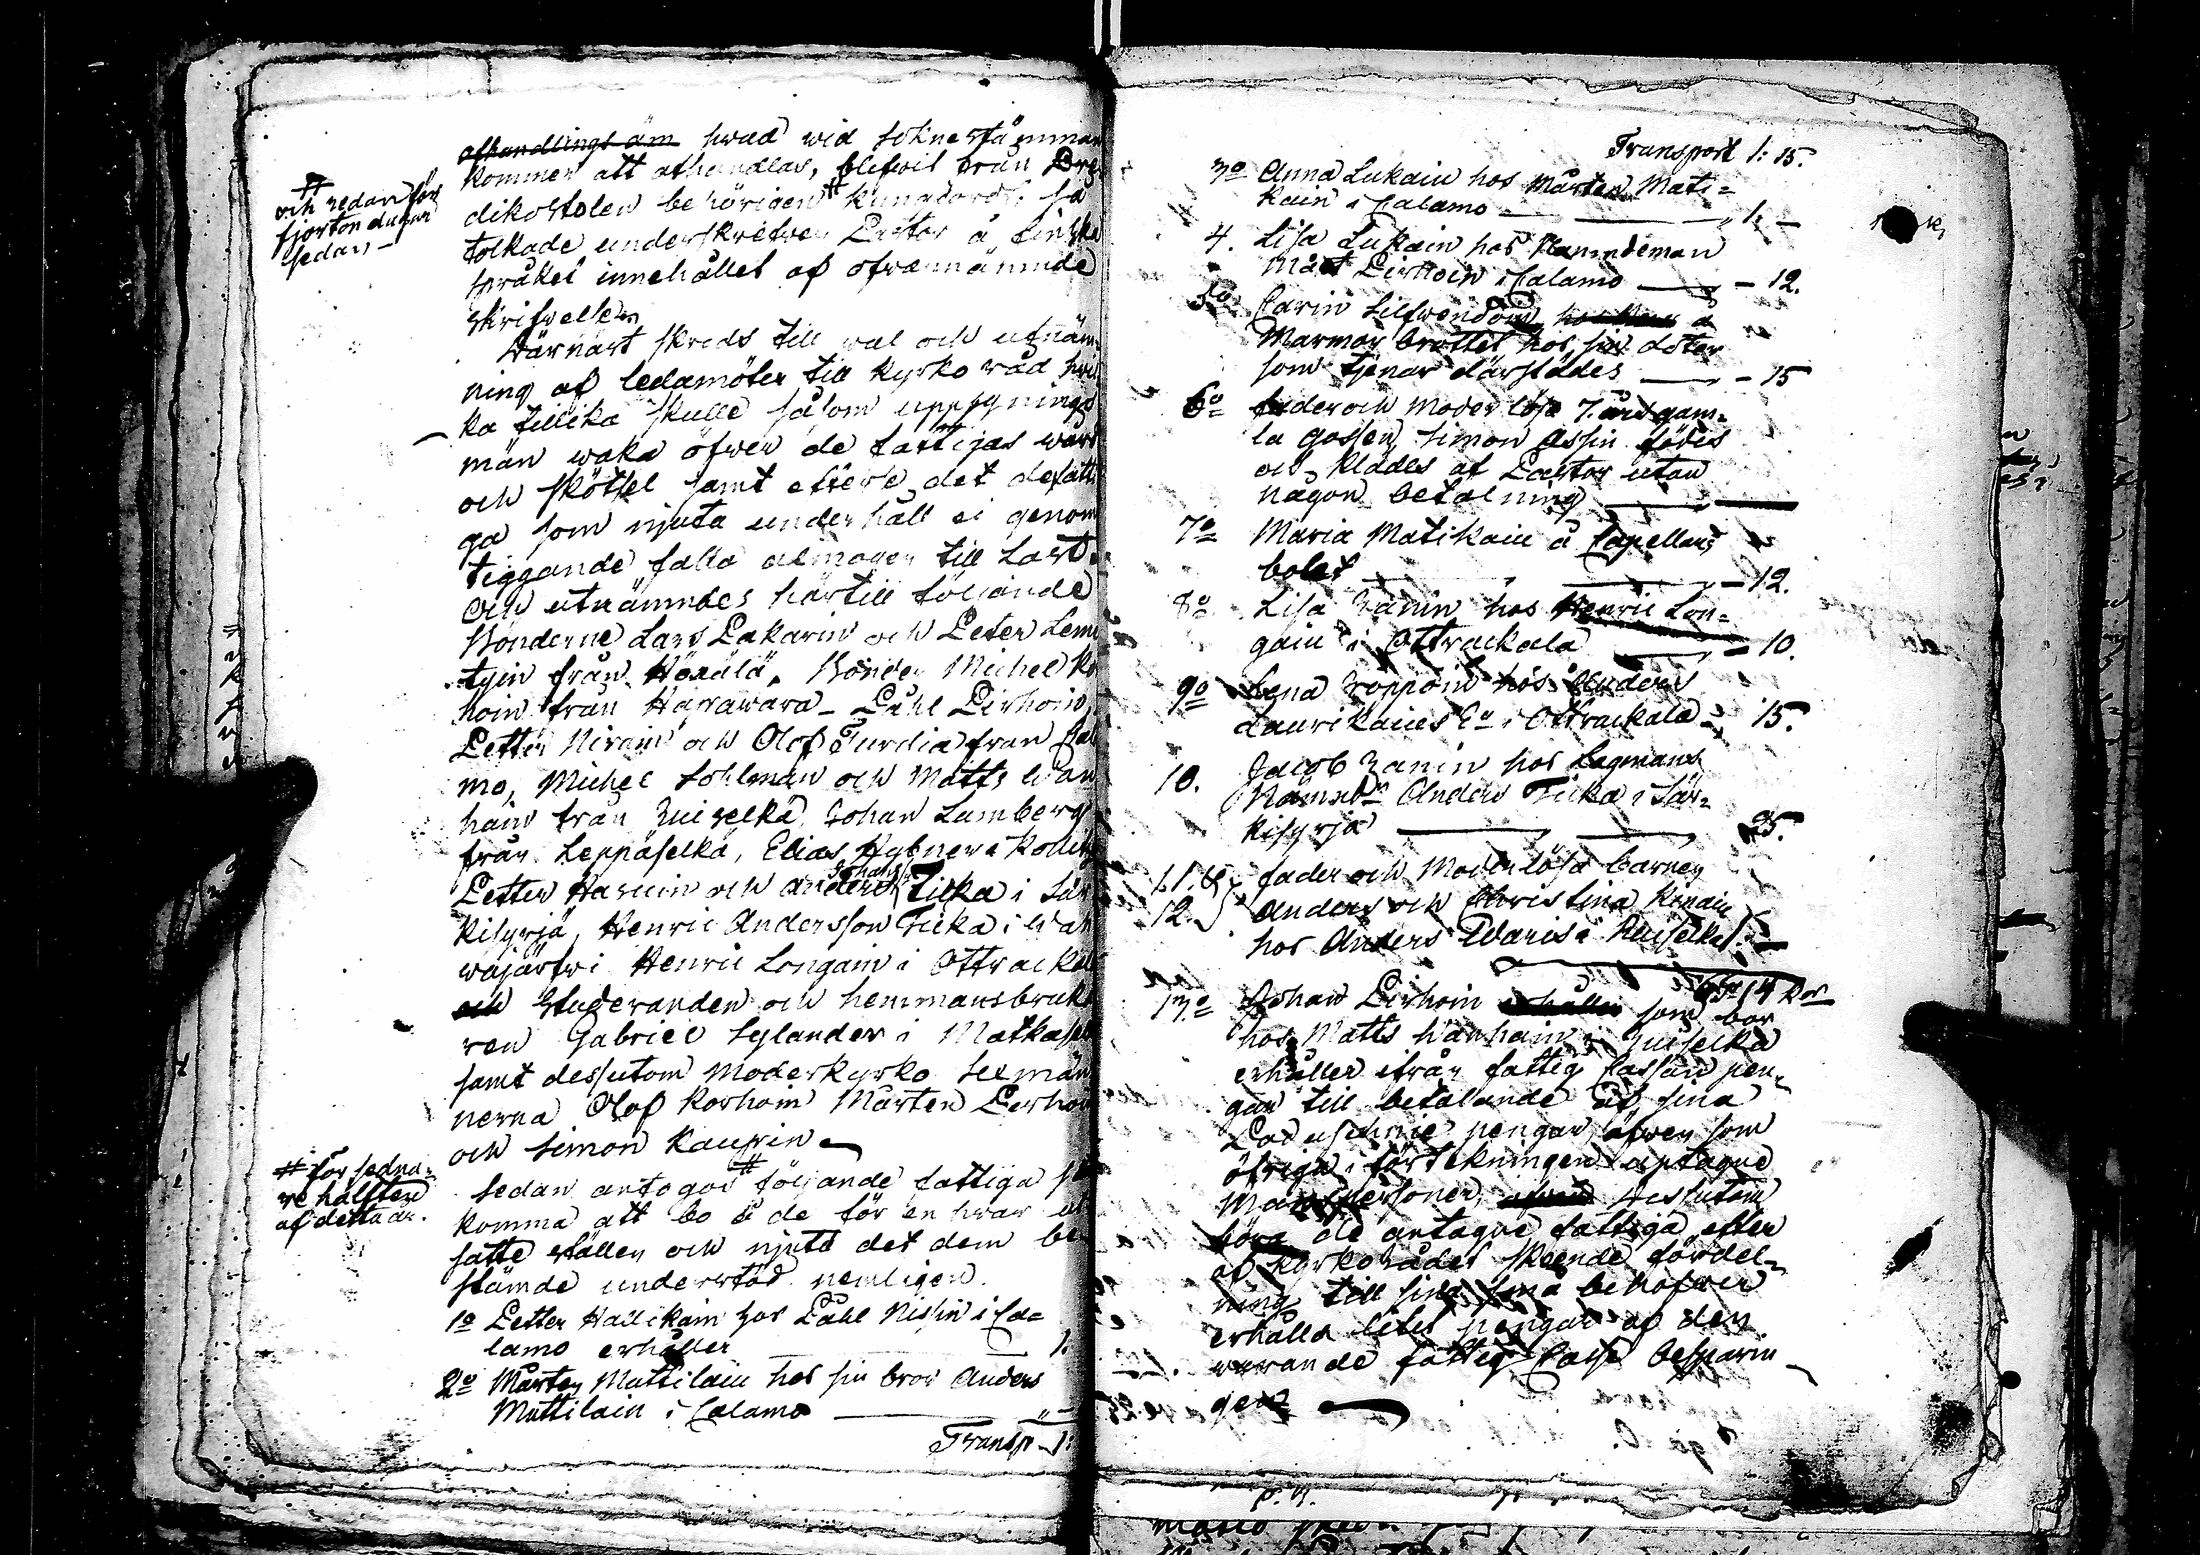 hwad wid soknestämman
kommer att afhandlas, blefwit från Pre-
dikostolen behörigen # kungjordt; så
tolkade underskrefwen Pastor å finska
språket innehållet af ofwannämnde
skrifwelse
Därnäst skreds till wal och utnäm-
ning af ledamöter till kyrko råd hwil
ka tillika skulle såsom uppsynings
män waka öfwer de fattigas wård
och skötsel samt efterse det de fatti
ga som njuta underhåll ei genom
tiggande falla almogen till last.
Och utnämndes härtill följande
Bönderne Lars Pakarin och Peter Lemi
tyin från Bonden Michel
hoin från Hapawara - Påhl Pirhoin,
Petter Hirwin och Olof Turdia från Cal
mo, Michel Sohlman och Matts Wan
hain från Ruiselkä Johan Lamberg
från Leppäselkä, Elias Hybner i
Petter och Anders Ticka i Sär
kisyrjä, Henric Andersson Ticka i Wal
wajärwi Henric Longain i Ottrackal
och Studeranden och hemmansbruka
ren Gabriel Sylander i Matkasel
samt dessutom Moderkyrko Sexmän
nerna Olof Korhoin Mårten Perhoi
och Simon Kaupin
Sedan antogos # följande fattiga
komma att bo å de för en hwar ut
satte ställen och njuta det dem be
stämde understöd nemligen.
1o Petter Hallikain hos Påhl Nisin i Ca=
lamo erhåller 1:
2o Mårten Mattilain hos sin bror Anders
Mattilain i Calamo
Transp 1:
# och redan för
fjorton dagar
sedan -
# för sedna-
re hälften
af detta år.
Transport 1: 15.
3o Anna Lukain hos Mårten Mati=
kain i Calamo 1: -
4. Lisa Lukain hos Nämndeman
Mårt Pirhoin i Calamo - 12.
5o Carin å
Marmor brottet hos sin doter
som tjenar därstädes - 15
6o fader och moder lösa 7 års gam-
la gossen Simon Assin födes
och klädes af Pastor utan
någon betalning
7o Maria Matikain å Capellans
bolet - 12.
8o Lisa Zanin hos Henric Lon=
gain i Ottrackala - 10.
9o Lena Zoppoin hos Anders
Laurikaines Ea i Ottrackala 15.
10. Jacob Zanin hos Lagmans
Nämndn Anders Ticka i Sär-
kisyrjä 25.
11. &
12. fader och Moderlösa barnen
Anders och Christina
hos Anders Waris i Ruiselkä
13o Johan Pirhoin som bor
hos Matts Wanhain i Ruiselkä
erhåller ifrån fattig Cassan pen-
gar till betalande af sina
pengar, äfwen som
öfriga i förtekningen antagne
Manspersoner, dessutom
böra de antagne fattiga efter
af kyrkorådet skeende fördel-
ning till sina små behofwer
erhålla litet pengar af den
warande fattig Casse besparin
gen